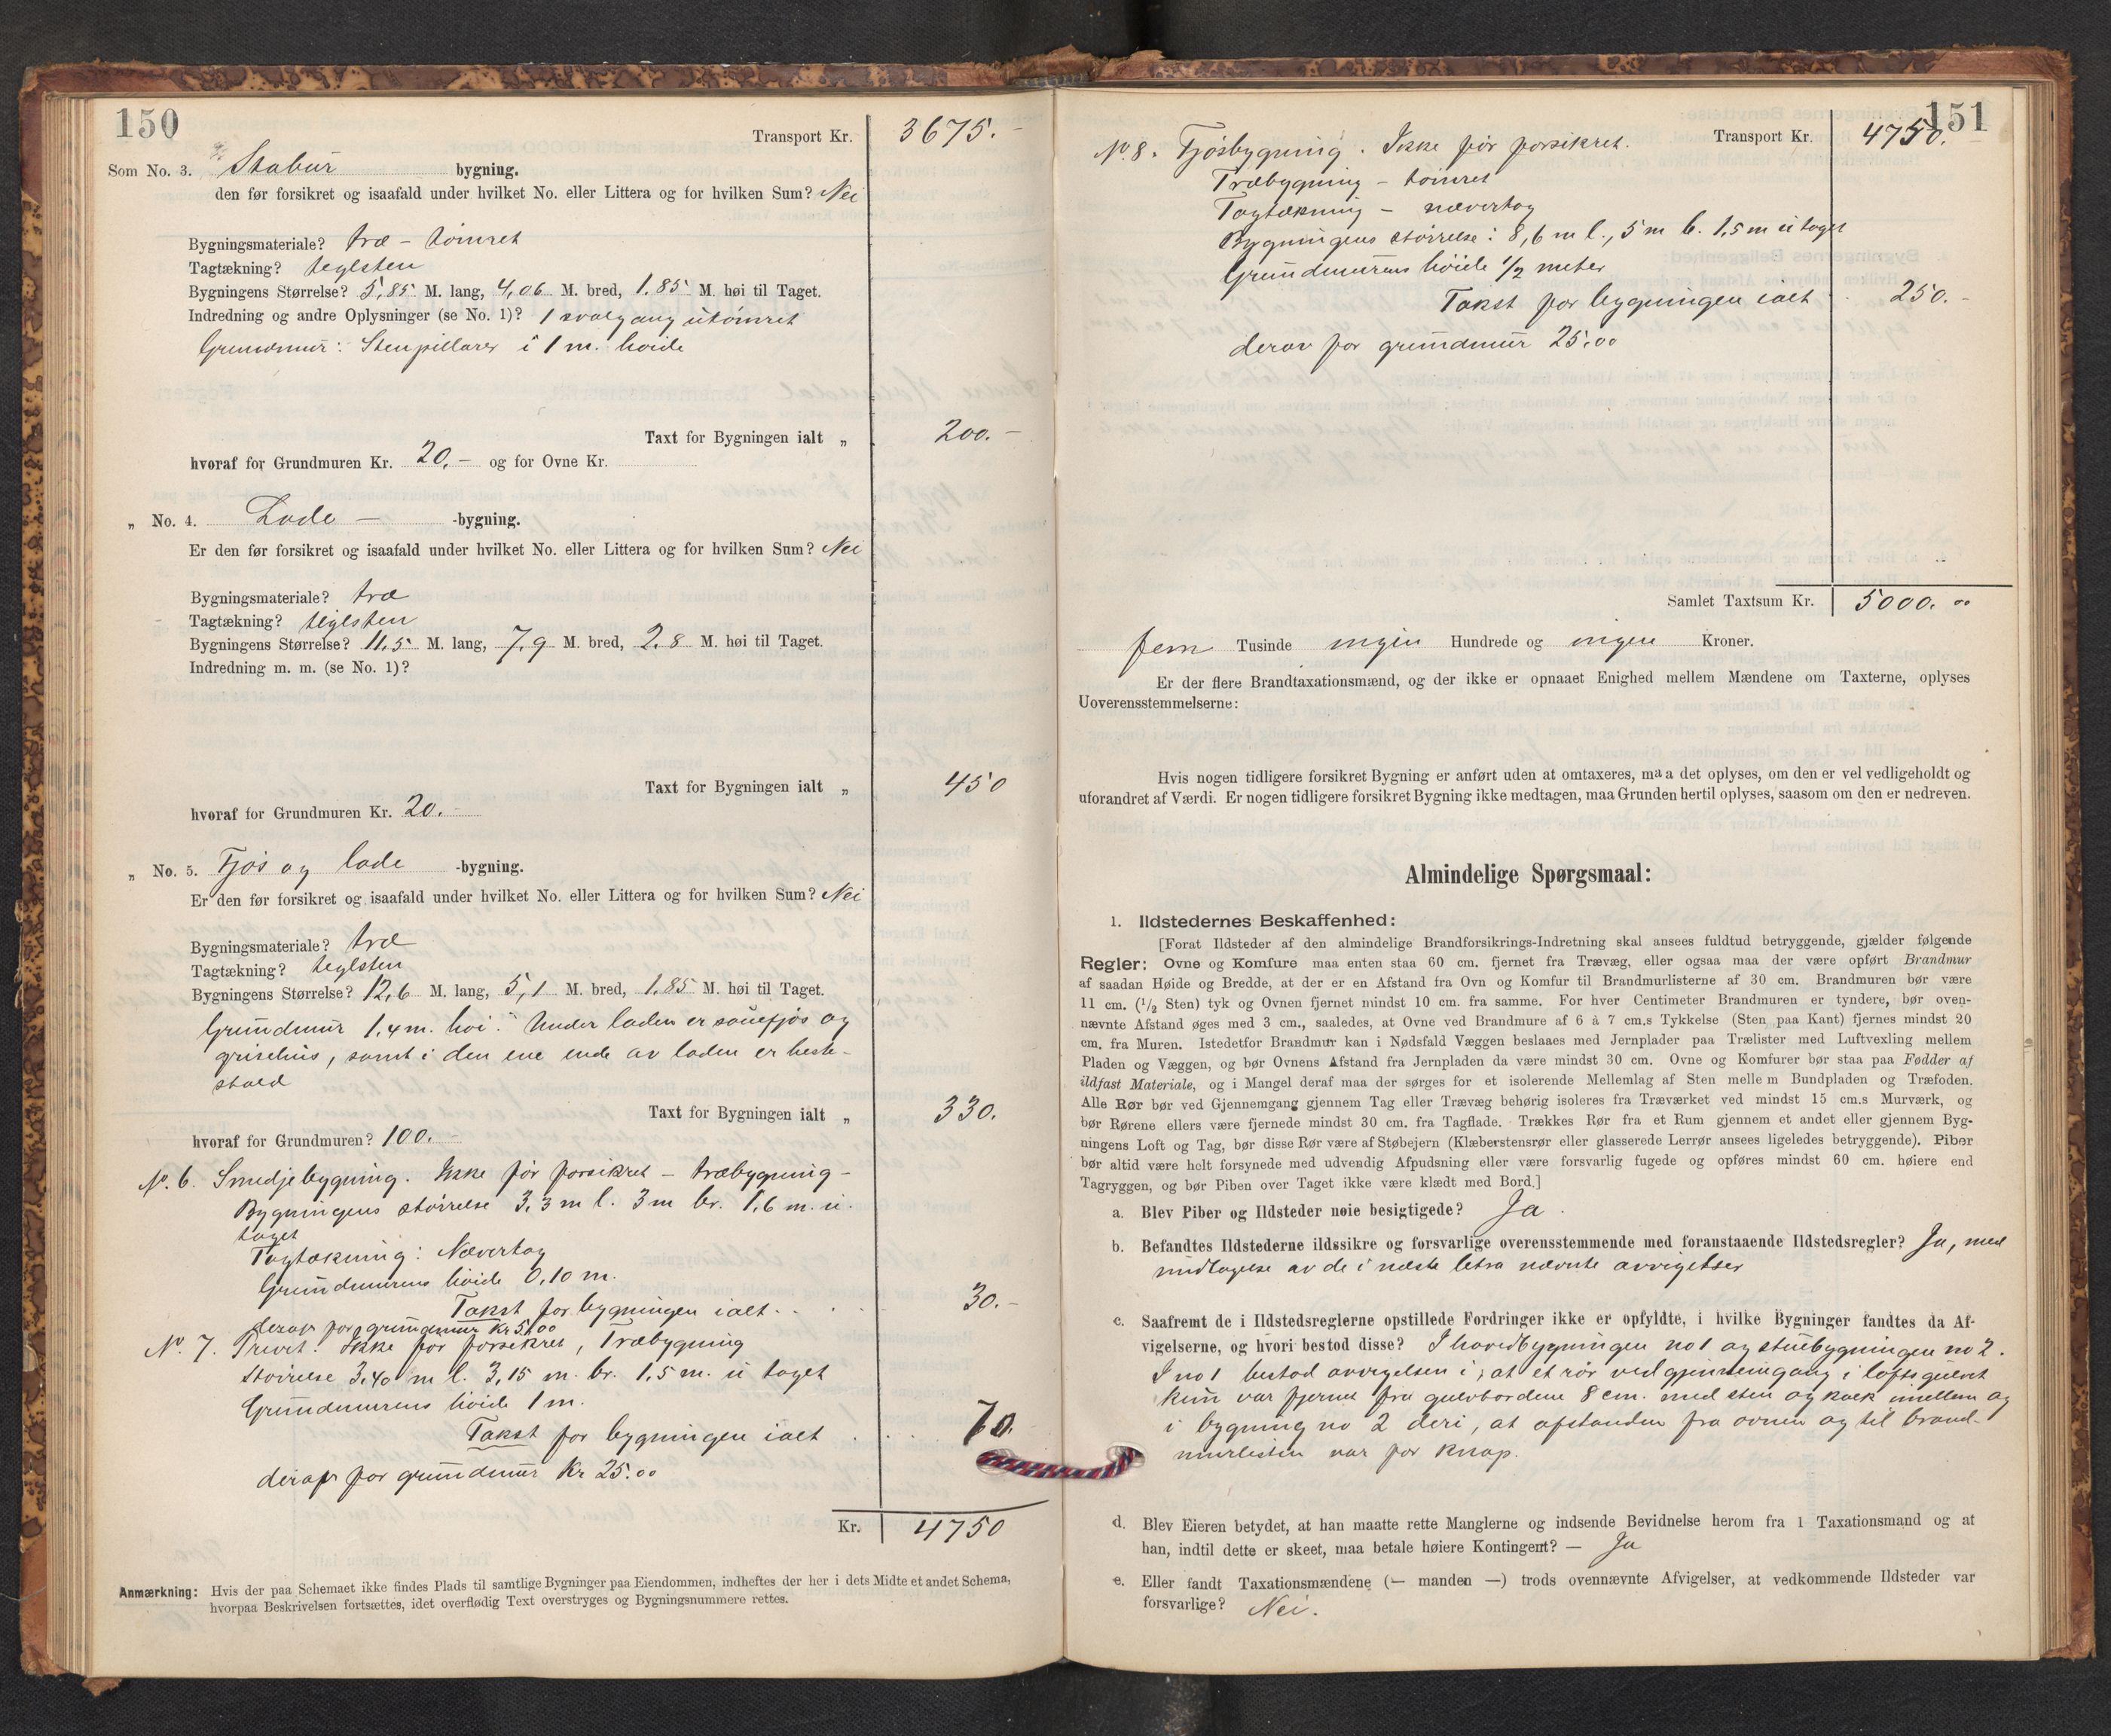 150
Transport Kr. 3675.-
Som No. 3. Stabur bygning.
den før forsikret og isaafald under hvilket No. eller Littera og for hvilken Sum? Nei
Bygningsmateriale? træ - tømret
Tagtækning? teglsten
Bygningens Størrelse? 5,85 M. lang, 4,06 M. bred, 1.85 M. høi til Taget.
Indredning og andre Oplysninger (se No. 1)? 1 svalgang utømret
Grundmur: Stenpillarer i 1 m. høide
Taxt for Bygningen ialt „ 200.-
hvoraf for Grundmuren Kr. 20.- og for Ovne Kr.
„ No. 4. Lade - -bygning.
Er den før forsikret og isaafald under hvilket No. eller Littera og for hvilken Sum? Nei
Bygningsmateriale? træ
Tagtækning? teglsten
Bygningens Størrelse? 11.5 M. lang, 7,9 M. bred, 2.8 M. høi til Taget.
Indredning m. m. (se No. 1)?
Taxt for Bygningen ialt „ 450
hvoraf for Grundmuren Kr. 20.-
„ No. 5. Fjøs og lade -bygning.
Er den før forsikret og isaafald under hvilket No. eller Littera og for hvilken Sum? Nei
Bygningsmateriale? træ
Tagtækning? teglsten
Bygningens Størrelse? 12,6 M. lang, 5,1 M. bred, 1,85 M. høi til Taget.
Grundmur 1,4 m. høi. Under laden er sauefjøs og
grisehus, samt i den ene ende av laden er heste-
stald
Taxt for Bygningen ialt „ 330.
hvoraf for Grundmuren? 100.-
No. 6. Smedjebygning. Ikke før forsikret - træbygning -
Bygningens størrelse 3,3 m l. 3 m br. 1,6 m. u.
taget
Tagtækning: Nævertag
Grundmurens høide 0,10 m.
Takst for bygningen ialt . . . . 30.-
deraf for grundmur Kr 5,00
No. 7. Privet. Ikke før forsikret, Træbygning
størrelse 3,40 m l. 3,15 m. br. 1,5 m. u taget
Grundmurens høide 1 m.
Takst for bygningen ialt . . . 70.
deraf for grundmur Kr 25.00
Kr. 4750
Anmærkning: Hvis der paa Schemaet ikke findes Plads til samtlige Bygninger paa Eiendommen, indheftes der her i dets Midte et andet Schema,
hvorpaa Beskrivelsen fortsættes, idet overflødig Text overstryges og Bygningsnummere rettes.
151
Transport Kr. 4750.
No 8. Fjøsbygning. Ikke før forsikret.
Træbygning - tømret
Tagtækning - nævertag
Bygningens størrelse: 8,6 m l., 5 m b. 1,5 m u taget
Grundmurens høide 1/2 meter
Takst for bygningen ialt . 250.-
derav for grundmur 25.00
Samlet Taxtsum Kr. 5000.00
fem Tusinde ingen Hundrede og ingen Kroner.
Er der flere Brandtaxationsmænd, og der ikke er opnaaet Enighed mellem Mændene om Taxterne, oplyses
Uoverensstemmelserne:
Hvis nogen tidligere forsikret Bygning er anført uden at omtaxeres, maa det oplyses, om den er vel vedligeholdt og
uforandret af Værdi. Er nogen tidligere forsikret Bygning ikke medtagen, maa Grunden hertil oplyses, saasom om den er nedreven.
Almindelige Spørgsmaal:
1. Ildstedernes Beskaffenhed:
[Forat Ildsteder af den almindelige Brandforsikrings-Indretning skal ansees fuldtud betryggende, gjælder følgende
Regler: Ovne og Komfure maa enten staa 60 cm. fjernet fra Trævæg, eller ogsaa maa der være opført Brandmur
af saadan Høide og Bredde, at der er en Afstand fra Ovn og Komfur til Brandmurlisterne af 30 cm. Brandmuren bør være
11 cm. (1/2 Sten) tyk og Ovnen fjernet mindst 10 cm. fra samme. For hver Centimeter Brandmuren er tyndere, bør oven-
nævnte Afstand øges med 3 cm., saaledes, at Ovne ved Brandmure af 6 à 7 cm.s Tykkelse (Sten paa Kant) fjernes mindst 20
cm. fra Muren. Istedetfor Brandmur kan i Nødsfald Væggen beslaaes med Jernplader paa Trælister med Luftvexling mellem
Pladen og Væggen, og bør Ovnens Afstand fra Jernpladen da være mindst 30 cm. Ovne og Komfurer bør staa paa Fødder af
ildfast Materiale, og i Mangel deraf maa der sørges for et isolerende Mellemlag af Sten mellem Bundpladen og Træfoden.
Alle Rør bør ved Gjennemgang gjennem Tag eller Trævæg behørig isoleres fra Træværket ved mindst 15 cm.s Murværk, og
bør Rørene ellers være fjernede mindst 30 cm. fra Tagflade. Trækkes Rør fra et Rum gjennem et andet eller gjennem Byg-
ningens Loft og Tag, bør disse Rør være af Støbejern (Klæberstensrør eller glasserede Lerrør ansees ligeledes betryggende). Piber
bør altid være helt forsynede med udvendig Afpudsning eller være forsvarlig fugede og opføres mindst 60 cm. høiere end
Tagryggen, og bør Piben over Taget ikke være klædt med Bord.]
a. Blev Piber og Ildsteder nøie besigtigede? Ja.
b. Befandtes Ildstederne ildssikre og forsvarlige overensstemmende med foranstaaende Ildstedsregler? Ja, med
undtagelse av de i næste letra nævnte avvigelser
c. Saafremt de i Ildstedsreglerne opstillede Fordringer ikke er opfyldte, i hvilke Bygninger fandtes da Af-
vigelserne, og hvori bestod disse? I hovedbygningen no 1 og stuebygningen no 2.
I no 1 bestod avvigelsen i, at et rør ved gjennemgang i loftsgulvet
kun var fjernet fra gulvbordene 8 cm. med sten og kalk imellem og
i bygning no 2 deri, at afstanden fra ovnen og til brand-
murlisten var for knap.
d. Blev Eieren betydet, at han maatte rette Manglerne og indsende Bevidnelse herom fra 1 Taxationsmand og at
han, indtil dette er skeet, maa betale høiere Kontingent? — Ja
e. Eller fandt Taxationsmændene (— manden —) trods ovennævnte Afvigelser, at vedkommende Ildsteder var
forsvarlige? Nei.